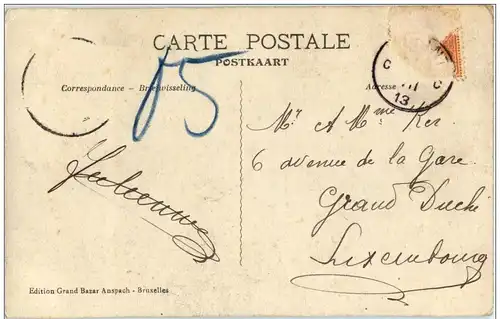 CARTE POSTALE
POSTKAART
Correspondance - Briefwisseling
Adresse
13
15
Mr & Mme Ker
6 avenue de la Gare
Grand Duché
Luxembourg
Edition Grand Bazar Anspach - Bruxelles